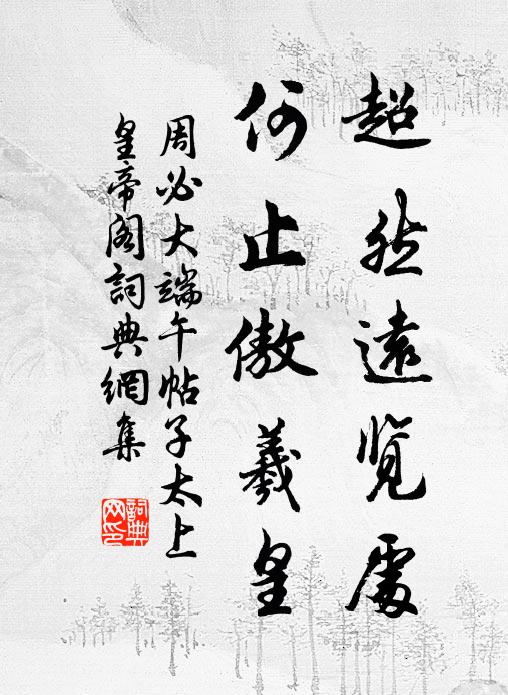 超然遠覽處
何止傲羲皇
周必大端午帖子太上
皇帝閣詞典網集
詞典网印